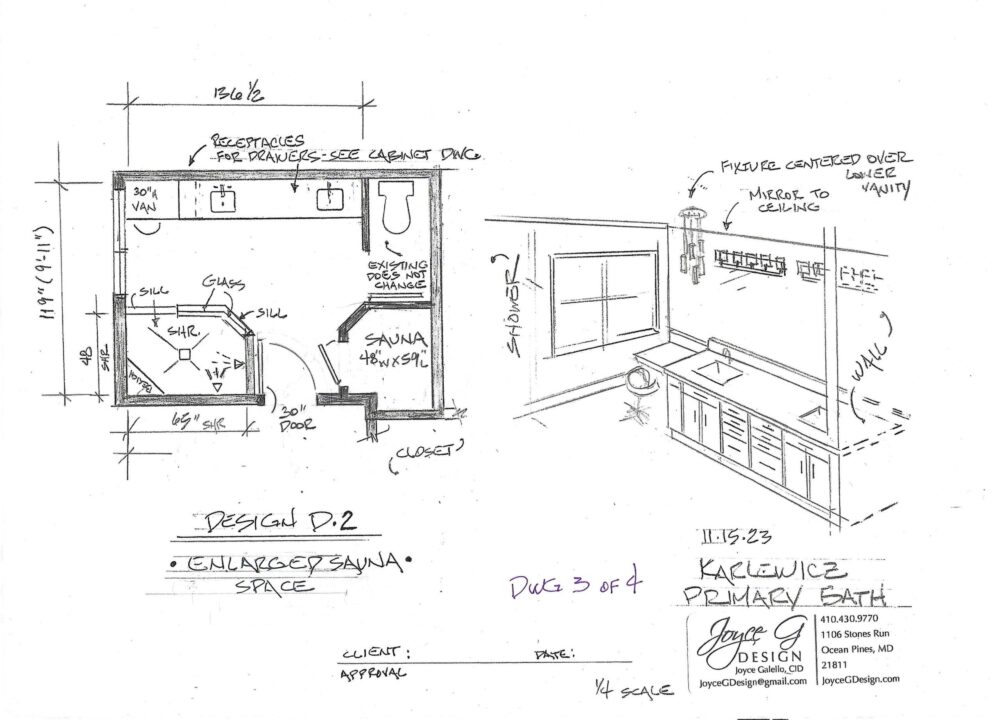 136 1/2
RECEPTACLES
FOR DRAWERS-SEE CABINET DWG.
119" (9'-11")
30"
VAN
EXISTING
DOES NOT
CHANGE
GLASS
SILL
SILL
SHR.
SAUNA
48"W X 59"L
48
SHR
BENCH
63" SHR
30"
DOOR
CLOSET
FIXTURE CENTERED OVER
LOWER
VANITY
MIRROR TO
CEILING
SHOWER
WALL
DESIGN D.2
• ENLARGED SAUNA •
SPACE
11.15.23
KARLEWICZ
PRIMARY BATH
DWG 3 OF 4
Joyce G
DESIGN
Joyce Galello, CID
JoyceGDesign@gmail.com
410.430.9770
1106 Stones Run
Ocean Pines, MD
21811
JoyceGDesign.com
CLIENT:
APPROVAL
DATE:
1/4 SCALE